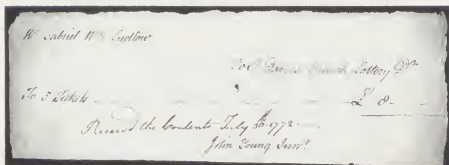 Mr Gabriel Wm Ludlow
To Church Lottery Dr
To 5 Tickets £ 8
Received the Contents July 30th 1772
John Young Junr.